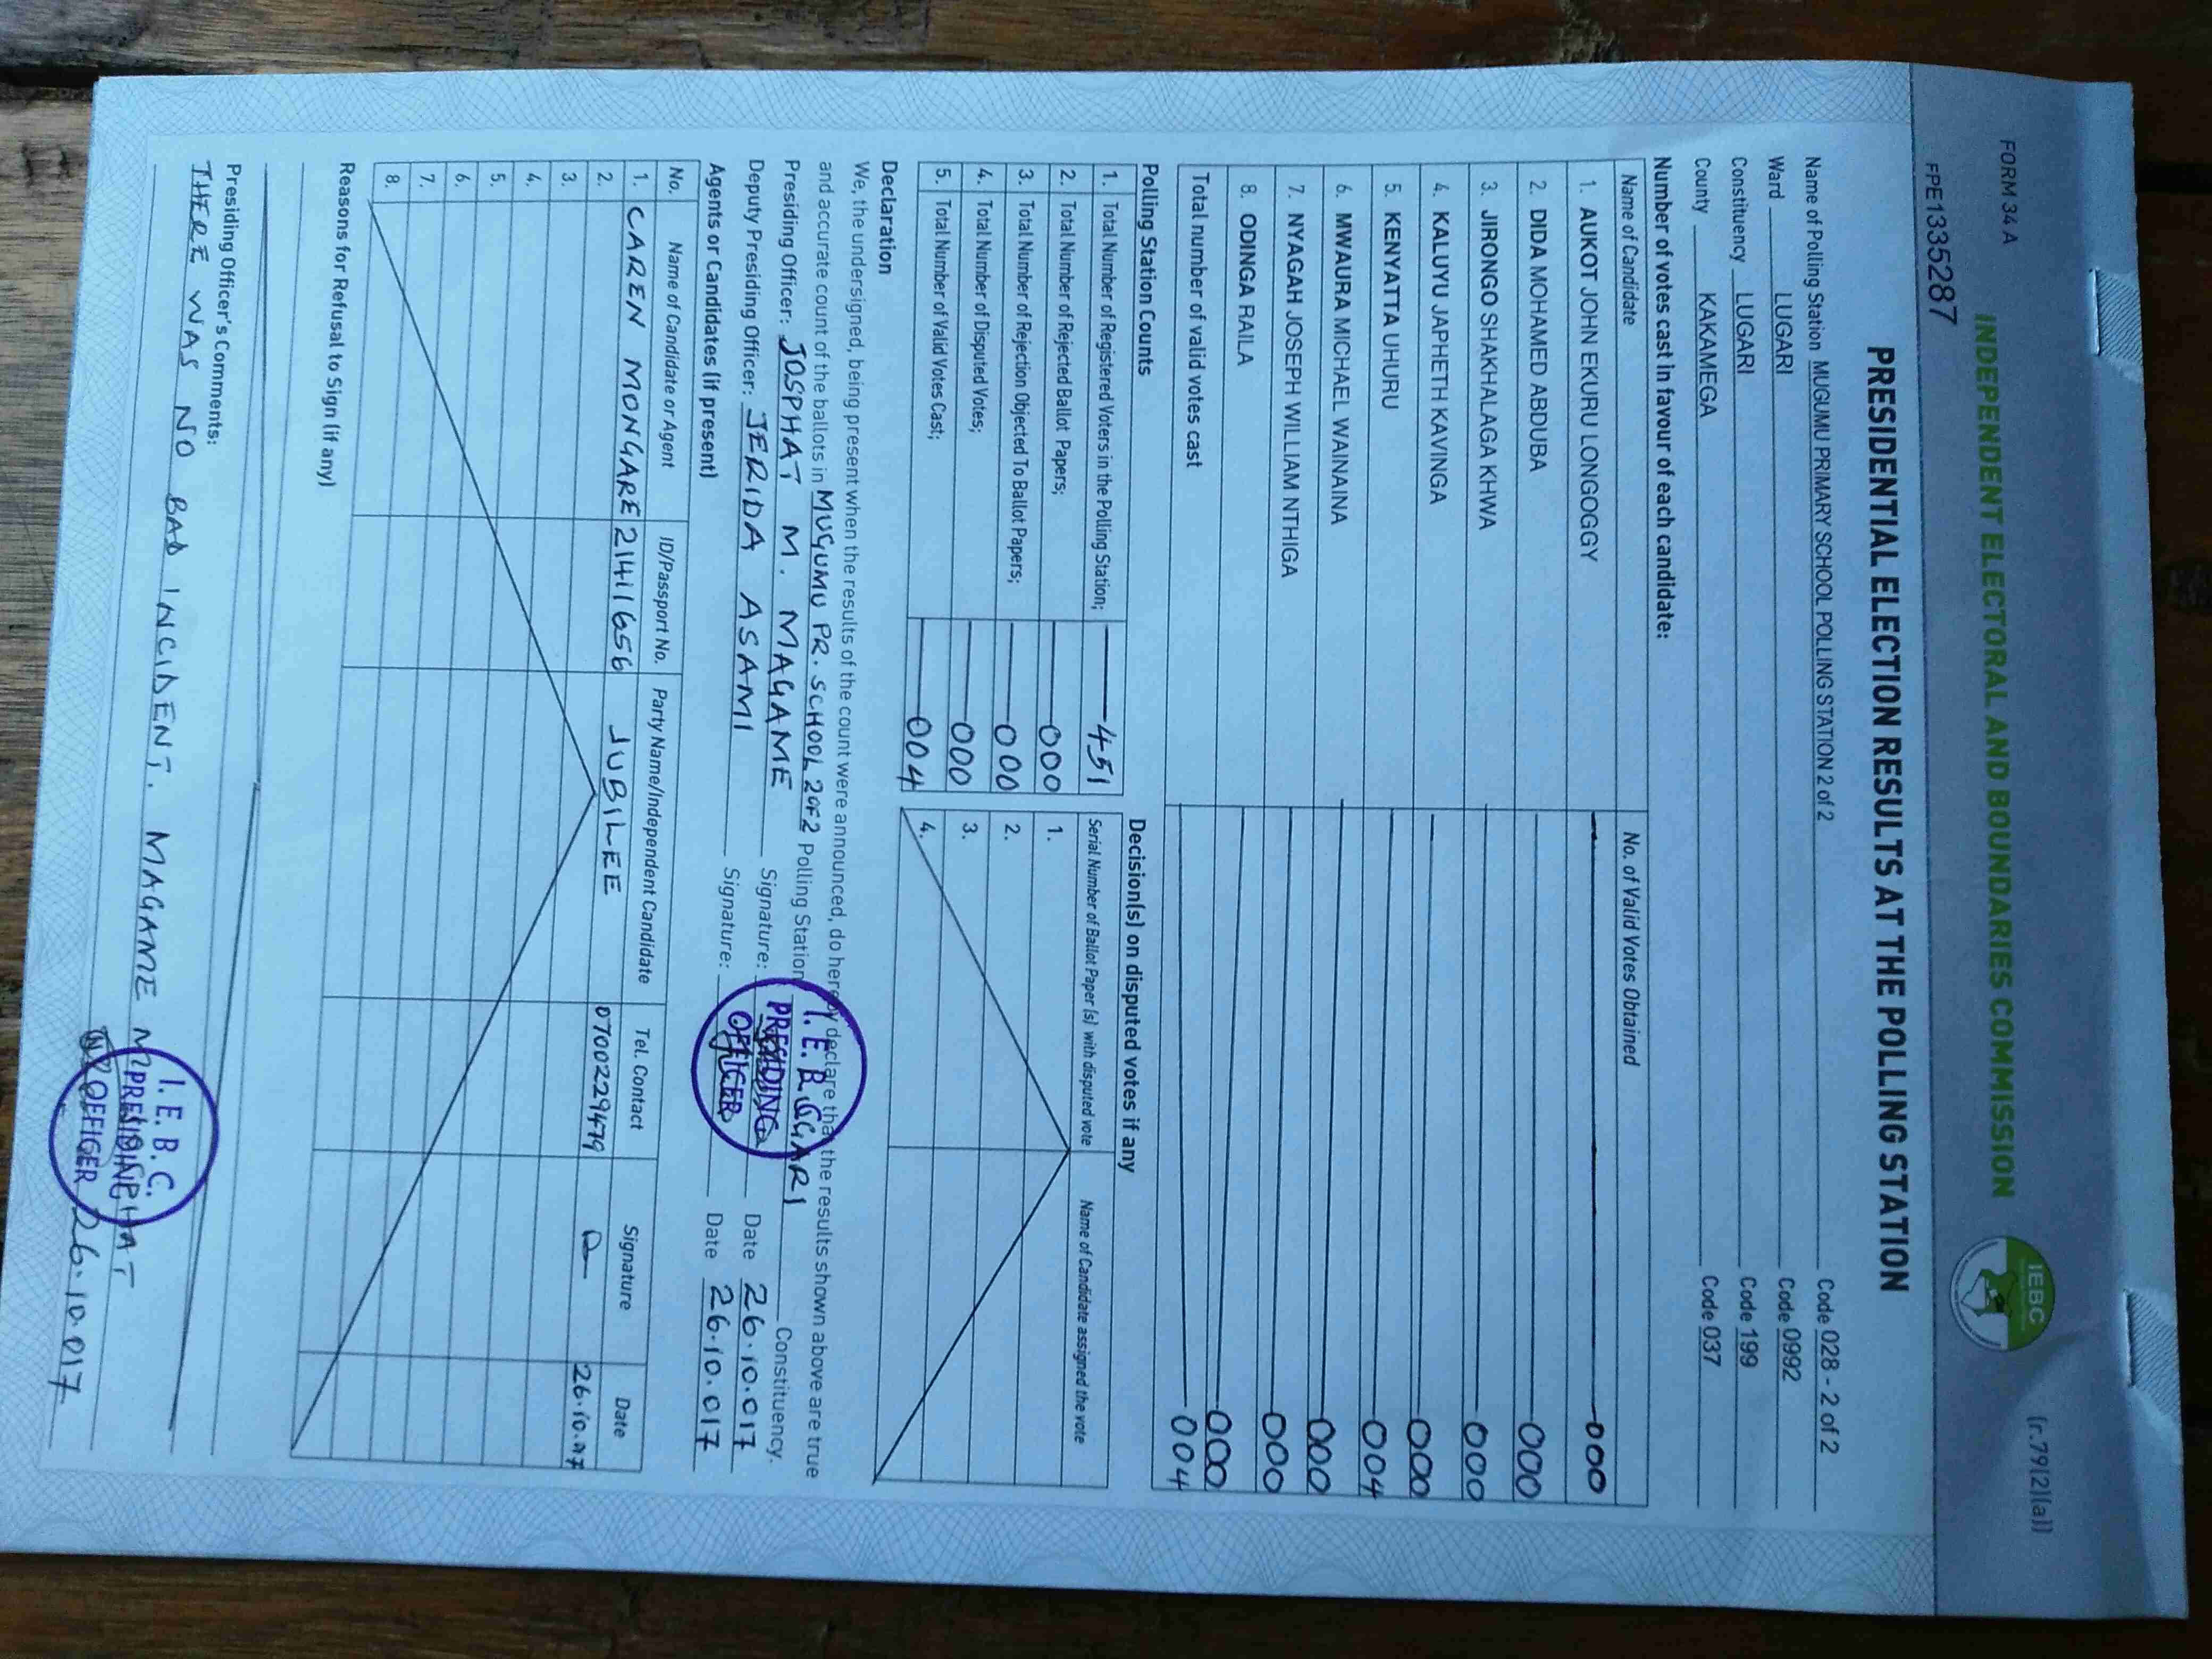 FORM 34 A
(r.79(2)(a))
INDEPENDENT ELECTORAL AND BOUNDARIES COMMISSION
IEBC
FPE1335287
PRESIDENTIAL ELECTION RESULTS AT THE POLLING STATION
Name of Polling Station MUGUMU PRIMARY SCHOOL POLLING STATION 2 of 2 Code 028 - 2 of 2
Ward LUGARI Code 0992
Constituency LUGARI Code 199
County KAKAMEGA Code 037
Number of votes cast in favour of each candidate:
Name of Candidate No. of Valid Votes Obtained
1. AUKOT JOHN EKURU LONGOGGY 000
2. DIDA MOHAMED ABDUBA 000
3. JIRONGO SHAKHALAGA KHWA 000
4. KALUYU JAPHETH KAVINGA 000
5. KENYATTA UHURU 004
6. MWAURA MICHAEL WAINAINA 000
7. NYAGAH JOSEPH WILLIAM NTHIGA 000
8. ODINGA RAILA 000
Total number of valid votes cast 004
Polling Station Counts
1. Total Number of Registered Voters in the Polling Station; 451
2. Total Number of Rejected Ballot Papers; 000
3. Total Number of Rejection Objected To Ballot Papers; 000
4. Total Number of Disputed Votes; 000
5. Total Number of Valid Votes Cast; 004
Decision(s) on disputed votes if any
Serial Number of Ballot Paper (s) with disputed vote Name of Candidate assigned the vote
1.
2.
3.
4.
Declaration
We, the undersigned, being present when the results of the count were announced, do hereby declare that the results shown above are true
and accurate count of the ballots in MUGUMU PR. SCHOOL 2 OF 2 Polling Station LUGARI Constituency.
Presiding Officer: JOSPHAT M. MAGAME Signature: Date 26.10.017
Deputy Presiding Officer: JERIDA ASAMI Signature: Date 26.10.017
I. E. B. C.
PRESIDING
OFFICER
Agents or Candidates (if present)
No. Name of Candidate or Agent ID/Passport No. Party Name/Independent Candidate Tel. Contact Signature Date
1. CAREN MONGARE 21411656 JUBILEE 0700229479 26.10.017
2.
3.
4.
5.
6.
7.
8.
Reasons for Refusal to Sign (if any)
Presiding Officer's Comments:
THERE WAS NO BAD INCIDENT. MAGAME M JOSPHAT
26.10.017
I. E. B. C.
PRESIDING
OFFICER